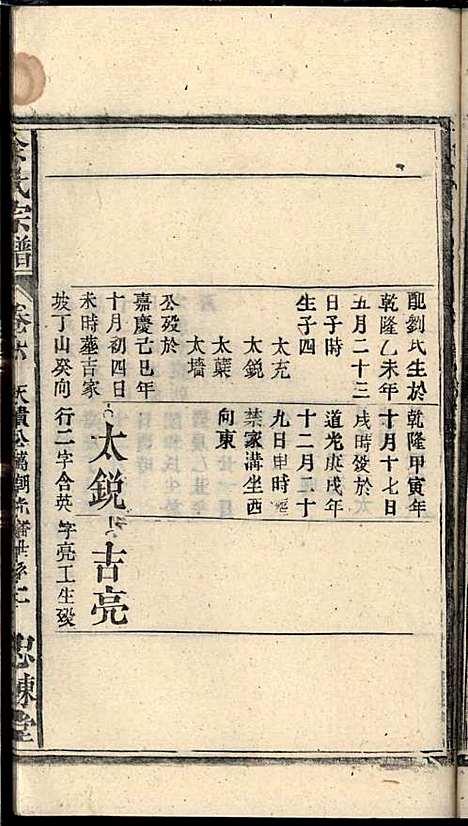 配劉氏生於
乾隆乙未年
五月二十三
日子時
生子四
太充
太鋭
太蘃
太墻
公殁於
嘉慶己巳年
十月初四日
未時塟吉家
坡丁山癸向
乾隆甲寅年
十月十七日
戌時殁於
道光庚戌年
十二月二十
九日申時塟
禁家溝坐西
向東
太鋭
吉亮
行二字含英
字亮工生殁
氏宗譜
卷六
天貴公萬朝
世系二
忠諫堂